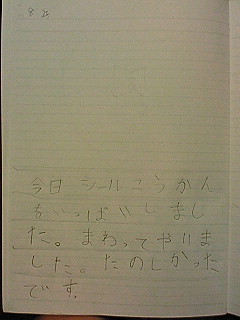 8 25
今日シールこうかん
がいっぱいしまし
た。まわってやりま
した。たのしかった
です。